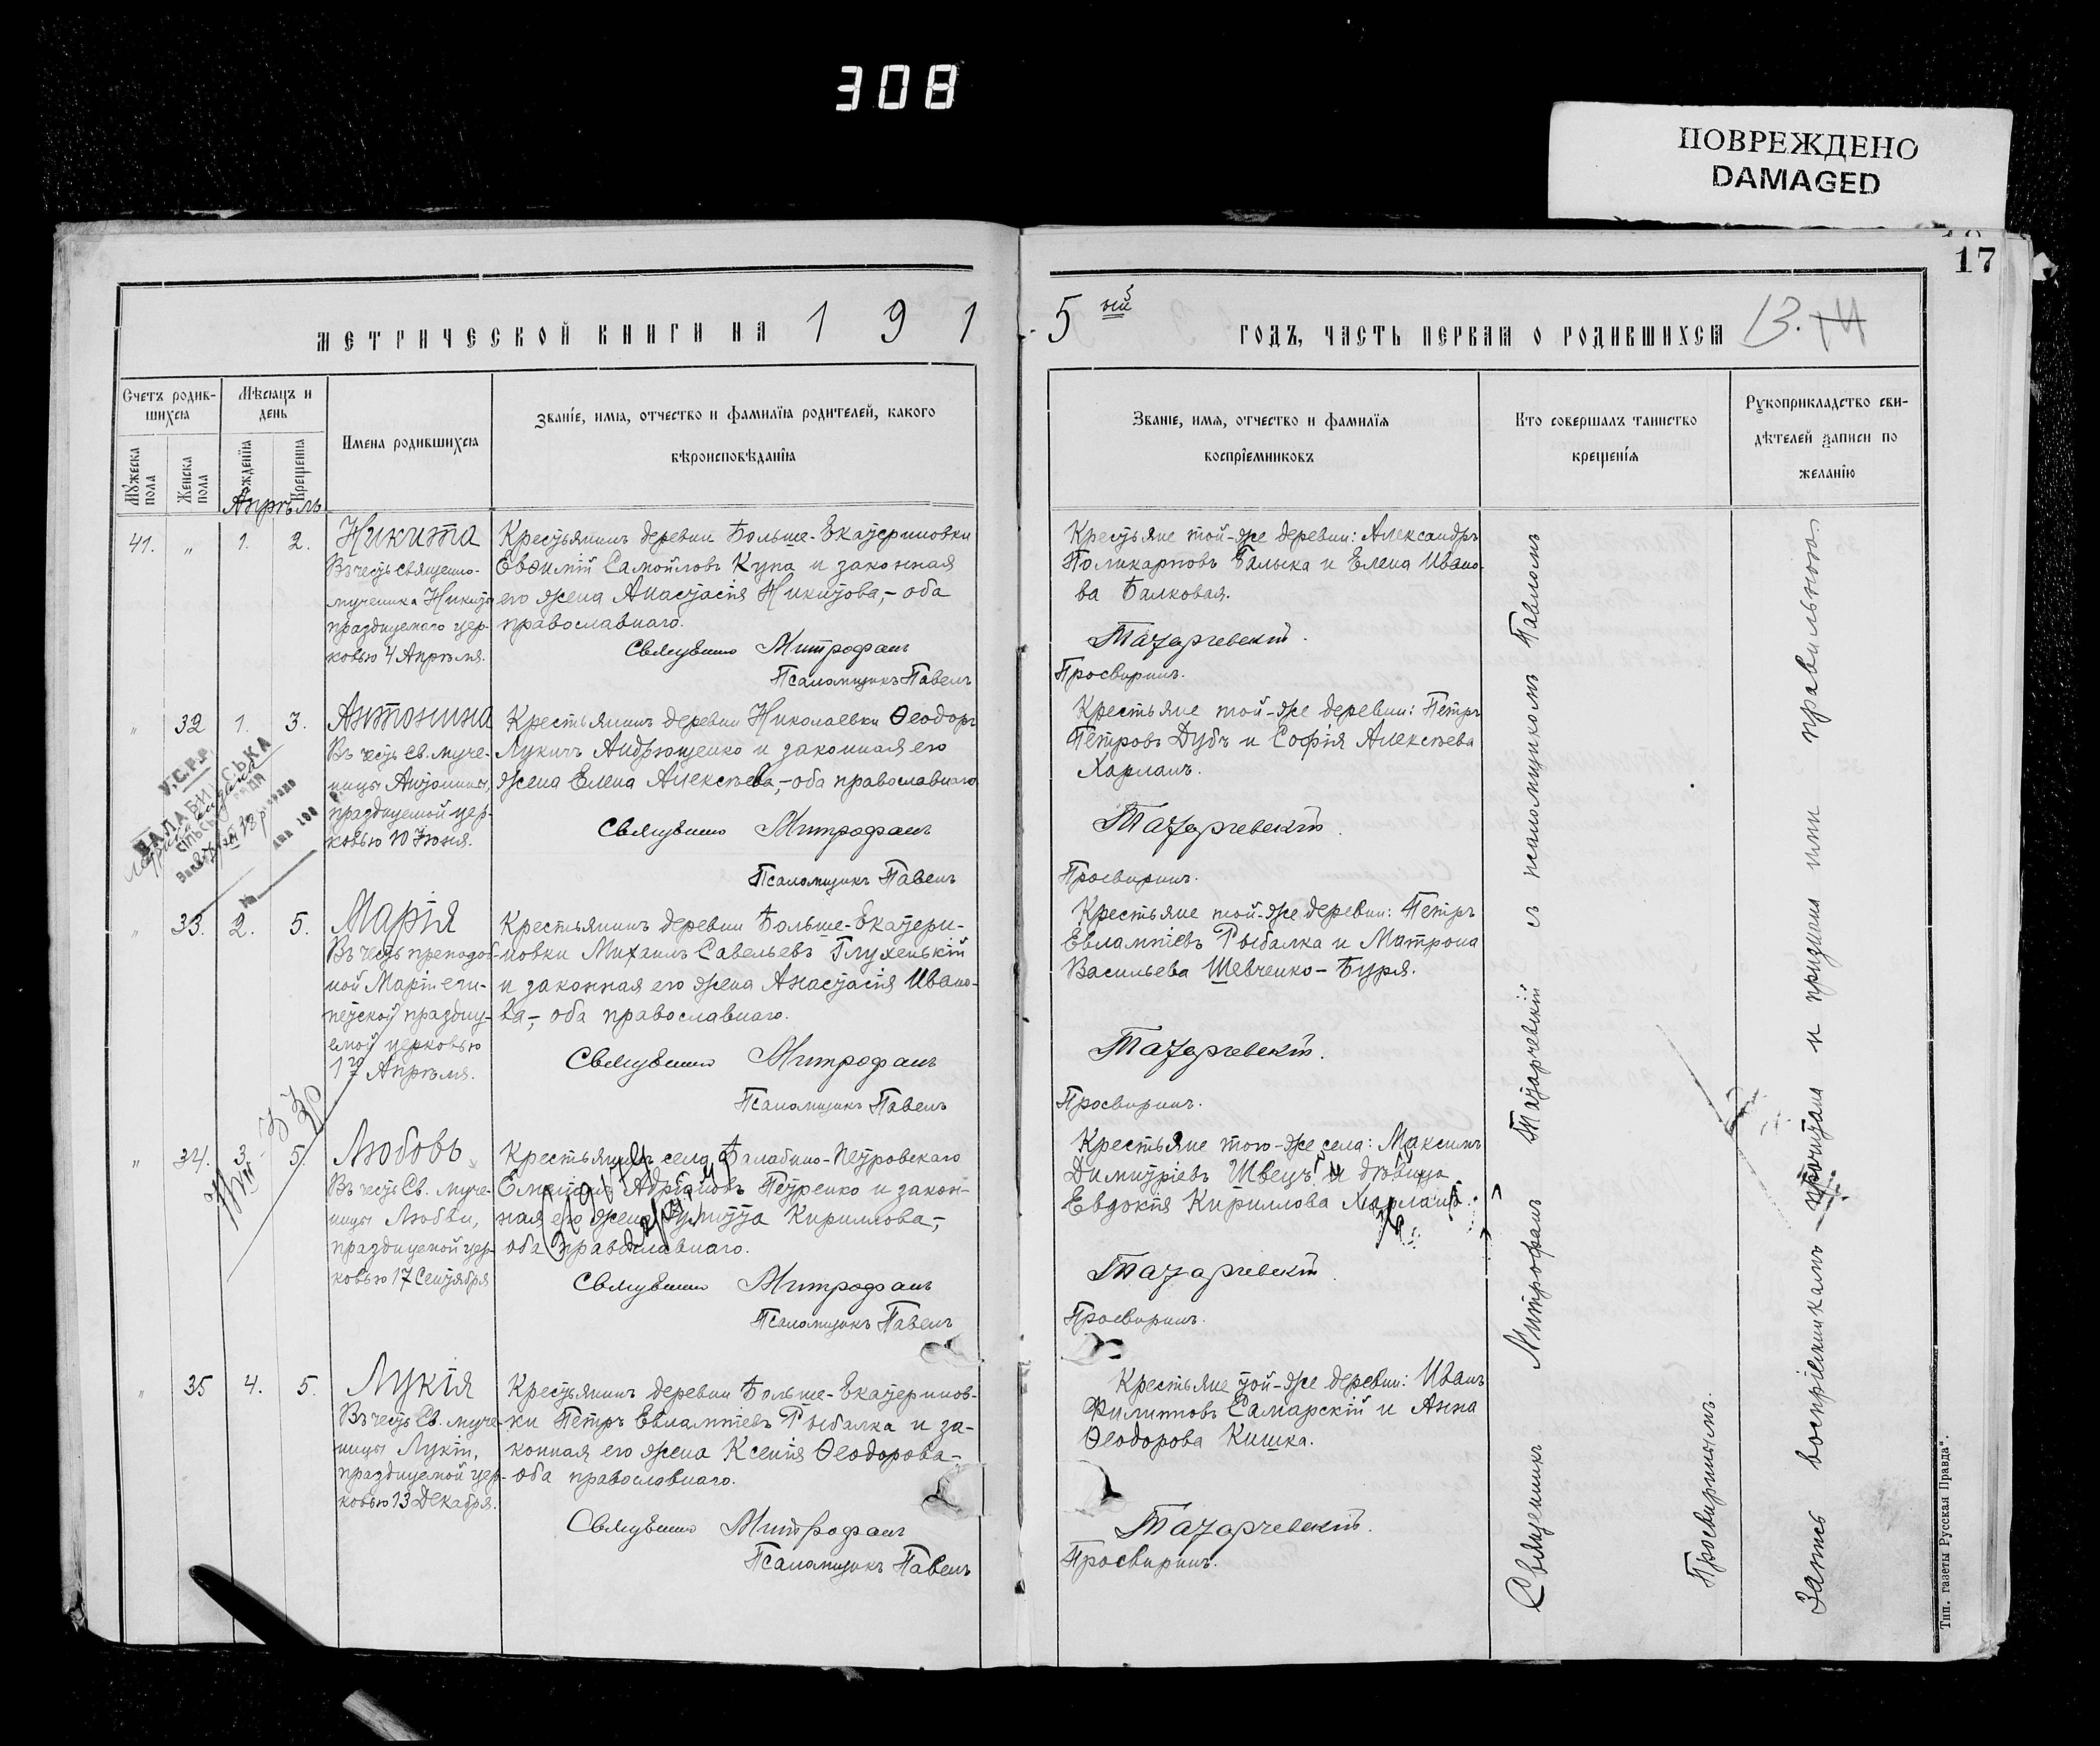 308
ПОВРЕЖДЕНО
DAMAGED
17
МЕТРИЧЕСКОЙ КНИГИ НА 1 9 1
5 ый ГОДЪ, ЧАСТЬ ПЕРВАЯ О РОДИВШИХСЯ 13. 14
Счетъ родив-
шихся
Мѣсяцъ и
день
Мужеска пола
Женска пола
Рожденія
Крещенія
Имена родившихся
Званіе, имя, отчество и фамилія родителей, какого
вѣроисповѣданія
Званіе, имя, отчество и фамилія
воспріемниковъ
Кто совершалъ таинство
крещенія
Рукоприкладство сви-
дѣтелей записи по
желанію
Апрѣль
41. " 1. 2.
Никита
Въ честь священно-
мученика Никиты
празднуемаго цер-
ковью 4 Апрѣля.
Крестьянинъ деревни Больше-Екатериновки
Евѳимій Самойловъ Купа и законная
его жена Анастасія Никитова,- оба
православнаго.
Священникъ Митрофанъ
Псаломщикъ Павелъ
Крестьяне той-же деревни: Александръ
Поликарповъ Балыка и Елена Ивано-
ва Балковая.
Тазарчевскій.
Просвиринъ.
" 32 1. 3.
Антонина
Въ честь Св. муче-
ницы Антонины,
празднуемой цер-
ковью 10 Іюня.
Крестьянинъ деревни Николаевки Ѳеодоръ
Лукичъ Андрющенко и законная его
жена Елена Алексѣева,- оба православнаго
Священникъ Митрофанъ
Псаломщикъ Павелъ
Крестьяне той-же деревни: Петръ
Петровъ Дубъ и Софія Алексѣева
Харланъ.
Тазарчевскій.
Просвиринъ.
У.С.Р.Р.
№
" 33. 2. 5.
Марія
Въ честь преподоб-
ной Маріи еги-
петской праздну-
емой церковью
1го Апрѣля.
Крестьянинъ деревни Больше-Екатери-
новки Михаилъ Савельевъ Глухенькій
и законная его жена Анастасія Ивано-
ва-, оба православнаго.
Священникъ Митрофанъ
Псаломщикъ Павелъ
Крестьяне той-же деревни: Петръ
Евлампіевъ Рыбалка и Матрона
Васильева Шевченко-Буря.
Тазарчевскій.
Просвиринъ.
" 34. 3. 5.
Любовь
Въ честь Св. муче-
ницы Любви,
празднуемой цер-
ковью 17 Сентября
Крестьянинъ села Балабино-Петровскаго
Адріановъ Петренко и закон-
ная его жена Кириллова-,
оба православнаго.
Священникъ Митрофанъ
Псаломщикъ Павелъ
Крестьяне того-же села: Максимъ
Димитріевъ Швецъ и дѣвица
Евдокія Кириллова Харланъ.
Тазарчевскій
Просвиринъ.
" 35 4. 5.
Лукія
Въ честь Св. муче-
ницы Лукіи,
празднуемой цер-
ковью 13 Декабря.
Крестьянинъ деревни Больше-Екатеринов-
ки Петръ Евлампіевъ Рыбалка и за-
конная его жена Ксенія Ѳеодорова-
оба православнаго.
Священникъ Митрофанъ
Псаломщикъ Павелъ
Крестьяне той-же деревни: Иванъ
Филипповъ Самарскій и Анна
Ѳеодорова Кишка.
Тазарчевскій.
Просвиринъ.
Священникъ Митрофанъ Тазарчевскій съ псаломщикомъ Павломъ
Просвиринымъ.
Запись воспріемникамъ прочитана и признана ими правильною
Тип. газеты „Русская Правда".